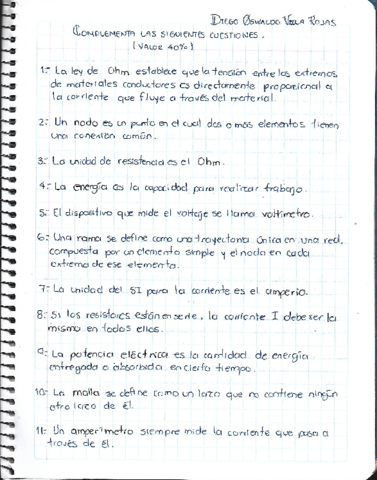 Diego Oswaldo Vela Rojas
Complementa las siguientes cuestiones.
(Valor 40%)
1.- La ley de Ohm establece que la tensión entre los extremos
de materiales conductores es directamente proporcional a
la corriente que fluye a través del material.
2.- Un nodo es un punto en el cual dos o más elementos tienen
una conexión común.
3.- La unidad de resistencia es el Ohm.
4.- La energía es la capacidad para realizar trabajo.
5.- El dispositivo que mide el voltaje se llama voltímetro.
6.- Una rama se define como una trayectoria única en una red,
compuesta por un elemento simple y el nodo en cada
extremo de ese elemento.
7.- La unidad del SI para la corriente es el amperio.
8.- Si los resistores están en serie, la corriente I debe ser la
misma en todos ellos.
9.- La potencia eléctrica es la cantidad de energía
entregada o absorbida en cierto tiempo.
10.- La malla se define como un lazo que no contiene ningún
otro lazo de él.
11.- Un amperímetro siempre mide la corriente que pasa a
través de él.